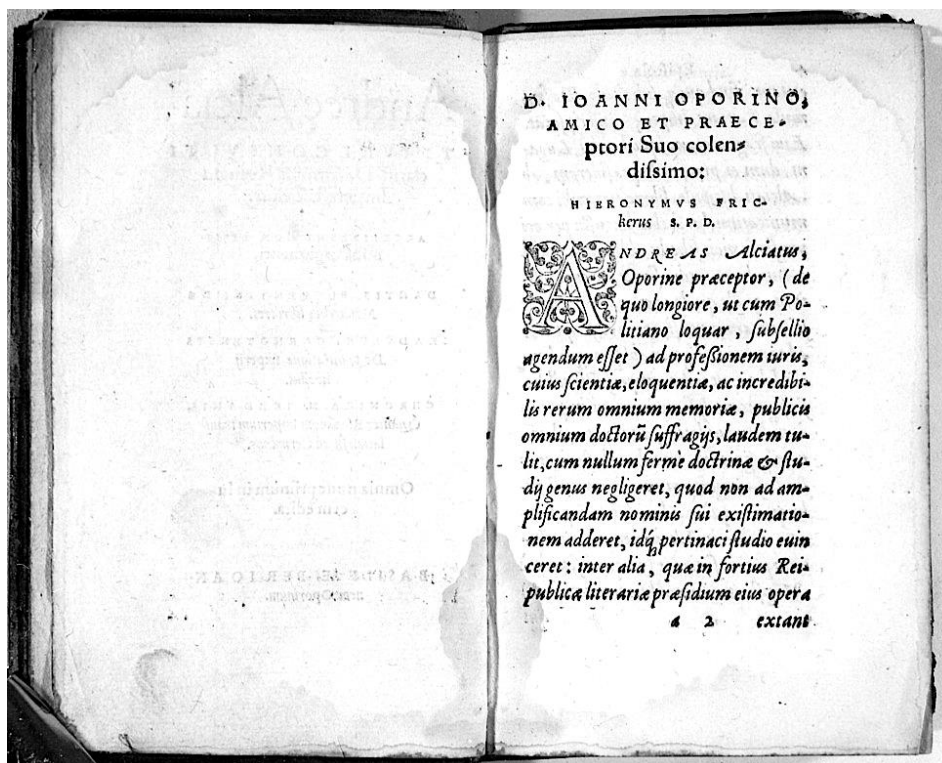 D. IOANNI OPORINO,
AMICO ET PRAECE-
ptori Suo colen-
dissimo:
HIERONYMVS FRIC-
kerus S. P. D.
ANDREAS Alciatus,
Oporine præceptor, (de
quo longiore, ut cum Po-
litiano loquar, subsellio
agendum esset) ad professionem iuris,
cuius scientiæ, eloquentiæ, ac incredibi-
lis rerum omnium memoriæ, publicis
omnium doctorũ suffragijs, laudem tu-
lit, cum nullum fermè doctrinæ & stu-
dij genus negligeret, quod non ad am-
plificandam nominis sui existimatio-
nem adderet, idq́ pertinaci studio euin
ceret: inter alia, quæ in fortius Rei-
publicæ literariæ præsidium eius opera
a 2 extant